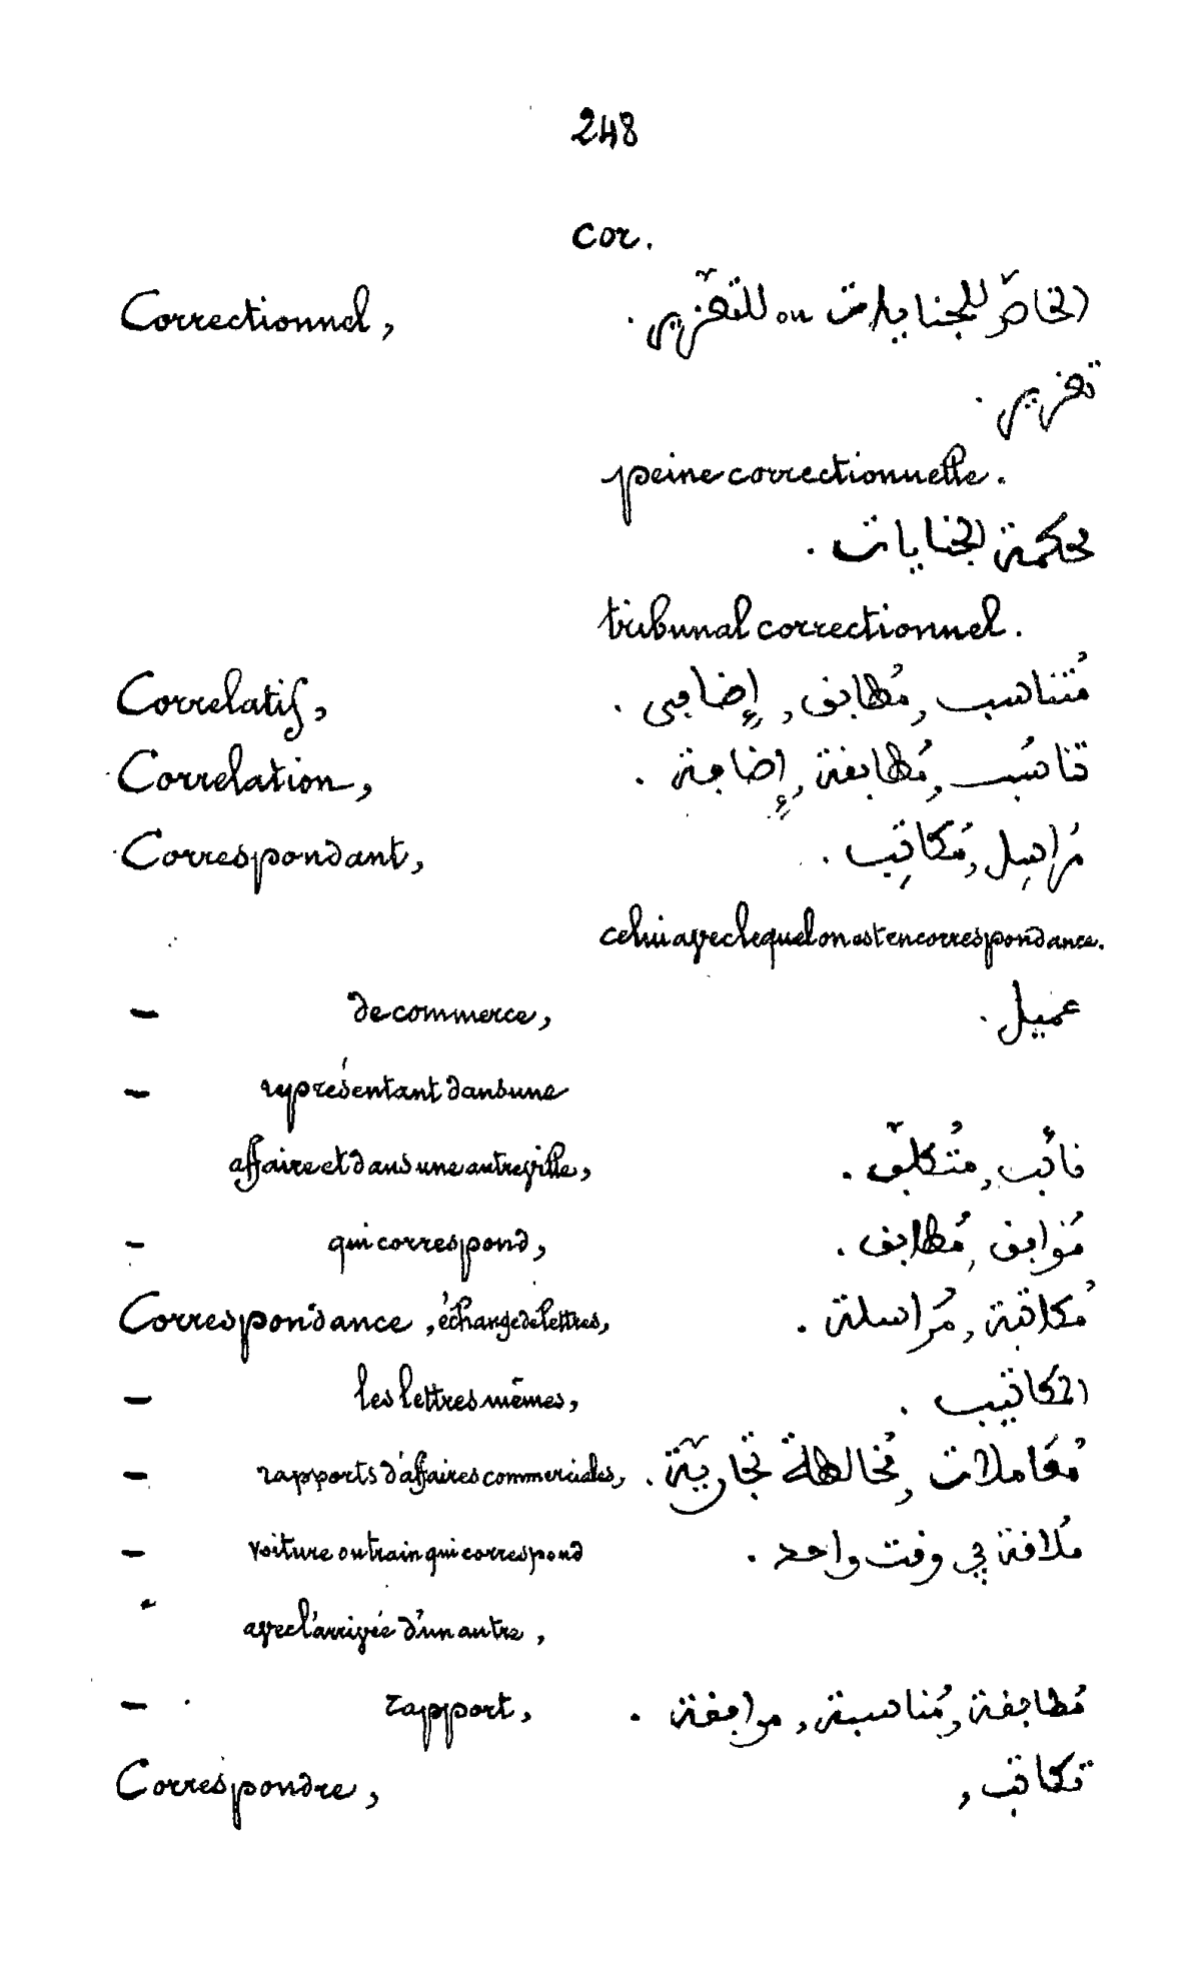 248
cor.
Correctionnel, الخاصّ للجنايات ou للتعزّير.
تعزير.
peine correctionnelle.
محكمة الجنايات.
tribunal correctionnel.
Correlatif, مُتناسب, مُطابق, إضافي.
Correlation, تناسُب, مُطابفة, إضافة.
Correspondant, مُراسِل, مُكاتِب.
celui avec lequel on est en correspondance.
— de commerce, عميل.
— représentant dans une
affaire et dans une autre ville, نائب, مُتكلّف.
— qui correspond, مُوافِق, مُطابق.
Correspondance, échange de lettres, مُكاتبة, مُراسلة.
— les lettres mêmes, المكاتيب.
— rapports d'affaires commerciales, مُعَاملات, مُخالطة تجاريّة.
— voiture ou train qui correspond مُلافة في وقت واحد.
avec l'arrivée d'un autre,
— rapport, مُطابفة, مُناسبة, موافقة.
Correspondre, تكاتب,